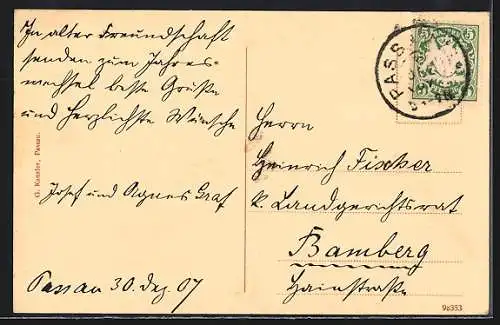 In alter Freundschaft
senden zum Jahres-
wechsel beste Grüße
und herzlichste Wünsche
Josef und Agnes Graf
Passau 30. Dez. 07
G. Kanzler, Passau.
PASSAU
5
5
Herrn
Heinrich Fischer
k. Landgerichtsrat
Bamberg
Hainstraße
9a353